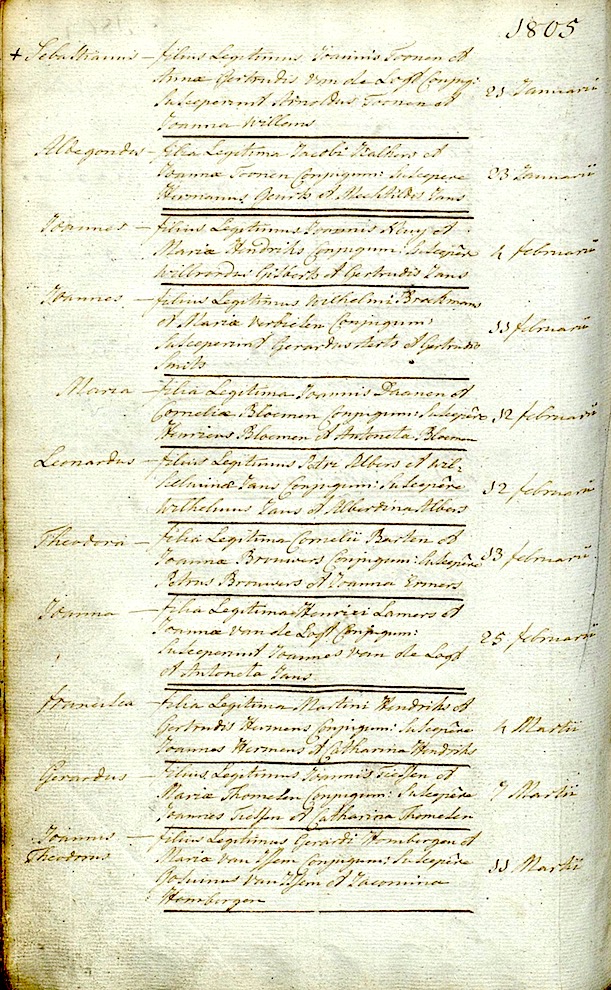 1805
+ Sebastianus – filius Legitimus Joannis Toonen et
Annæ Gertrudis van de Logt Conjug:
Susceperunt Arnoldus Toonen et 21 Januarii
Joanna Willems
Aldegondus – filia Legitima Jacobi Walhers et
Joannæ Toonen Conjugum: Suscepere 23 Januarii
Hermanus Geurts et Mechtildis Jans
Joannes – filius Legitimus Joannis Kluy et
Mariæ Hendriks Conjugum: Suscepêre 4 februarii
Willibrordus Gisberts et Gertrudis Jans
Joannes – filius Legitimus Wilhelmi Broekmans
et Mariæ Verbielen Conjugum: 11 februarii
Susceperunt Gerardus Aerts et Gertrudis
Smits
Maria – filia Legitima Joannis Daanen et
Corneliæ Bloemen Conjugum: Suscepêre 12 februarii
Henricus Bloemen et Antoneta Bloemen
Leonardus – filius Legitimus Petri Albers et Wil-
helminæ Jans Conjugum: Suscepêre 12 februarii
Wilhelmus Jans et Alberdina Albers
Theodora – filia Legitima Cornelii Barten et
Joannæ Brouwers Conjugum: Suscepêre 13 februarii
Petrus Brouwers et Joanna Ermers
Joanna – filia Legitima Henrici Lamers et
Joannæ van de Logt Conjugum:
Susceperunt Joannes van de Logt 25 februarii
et Antoneta Jans
francisca – filia Legitima Martini Hendriks et
Gertrudis Hermens Conjugum: Suscepêre 4 Martii
Joannes Hermens et Catharina Hendriks
Gerardus – filius Legitimus Joannis Tiessen et
Mariæ Thomelen Conjugum: Suscepêre 7 Martii
Joannes Tiessen et Catharina Thomelen
Joannes – filius Legitimus Gerardi Hombergen et
Theodorus Mariæ van Issem Conjugum: Suscepêre 11 Martii
Gosuinus van Issem et Jacomina
Hombergen